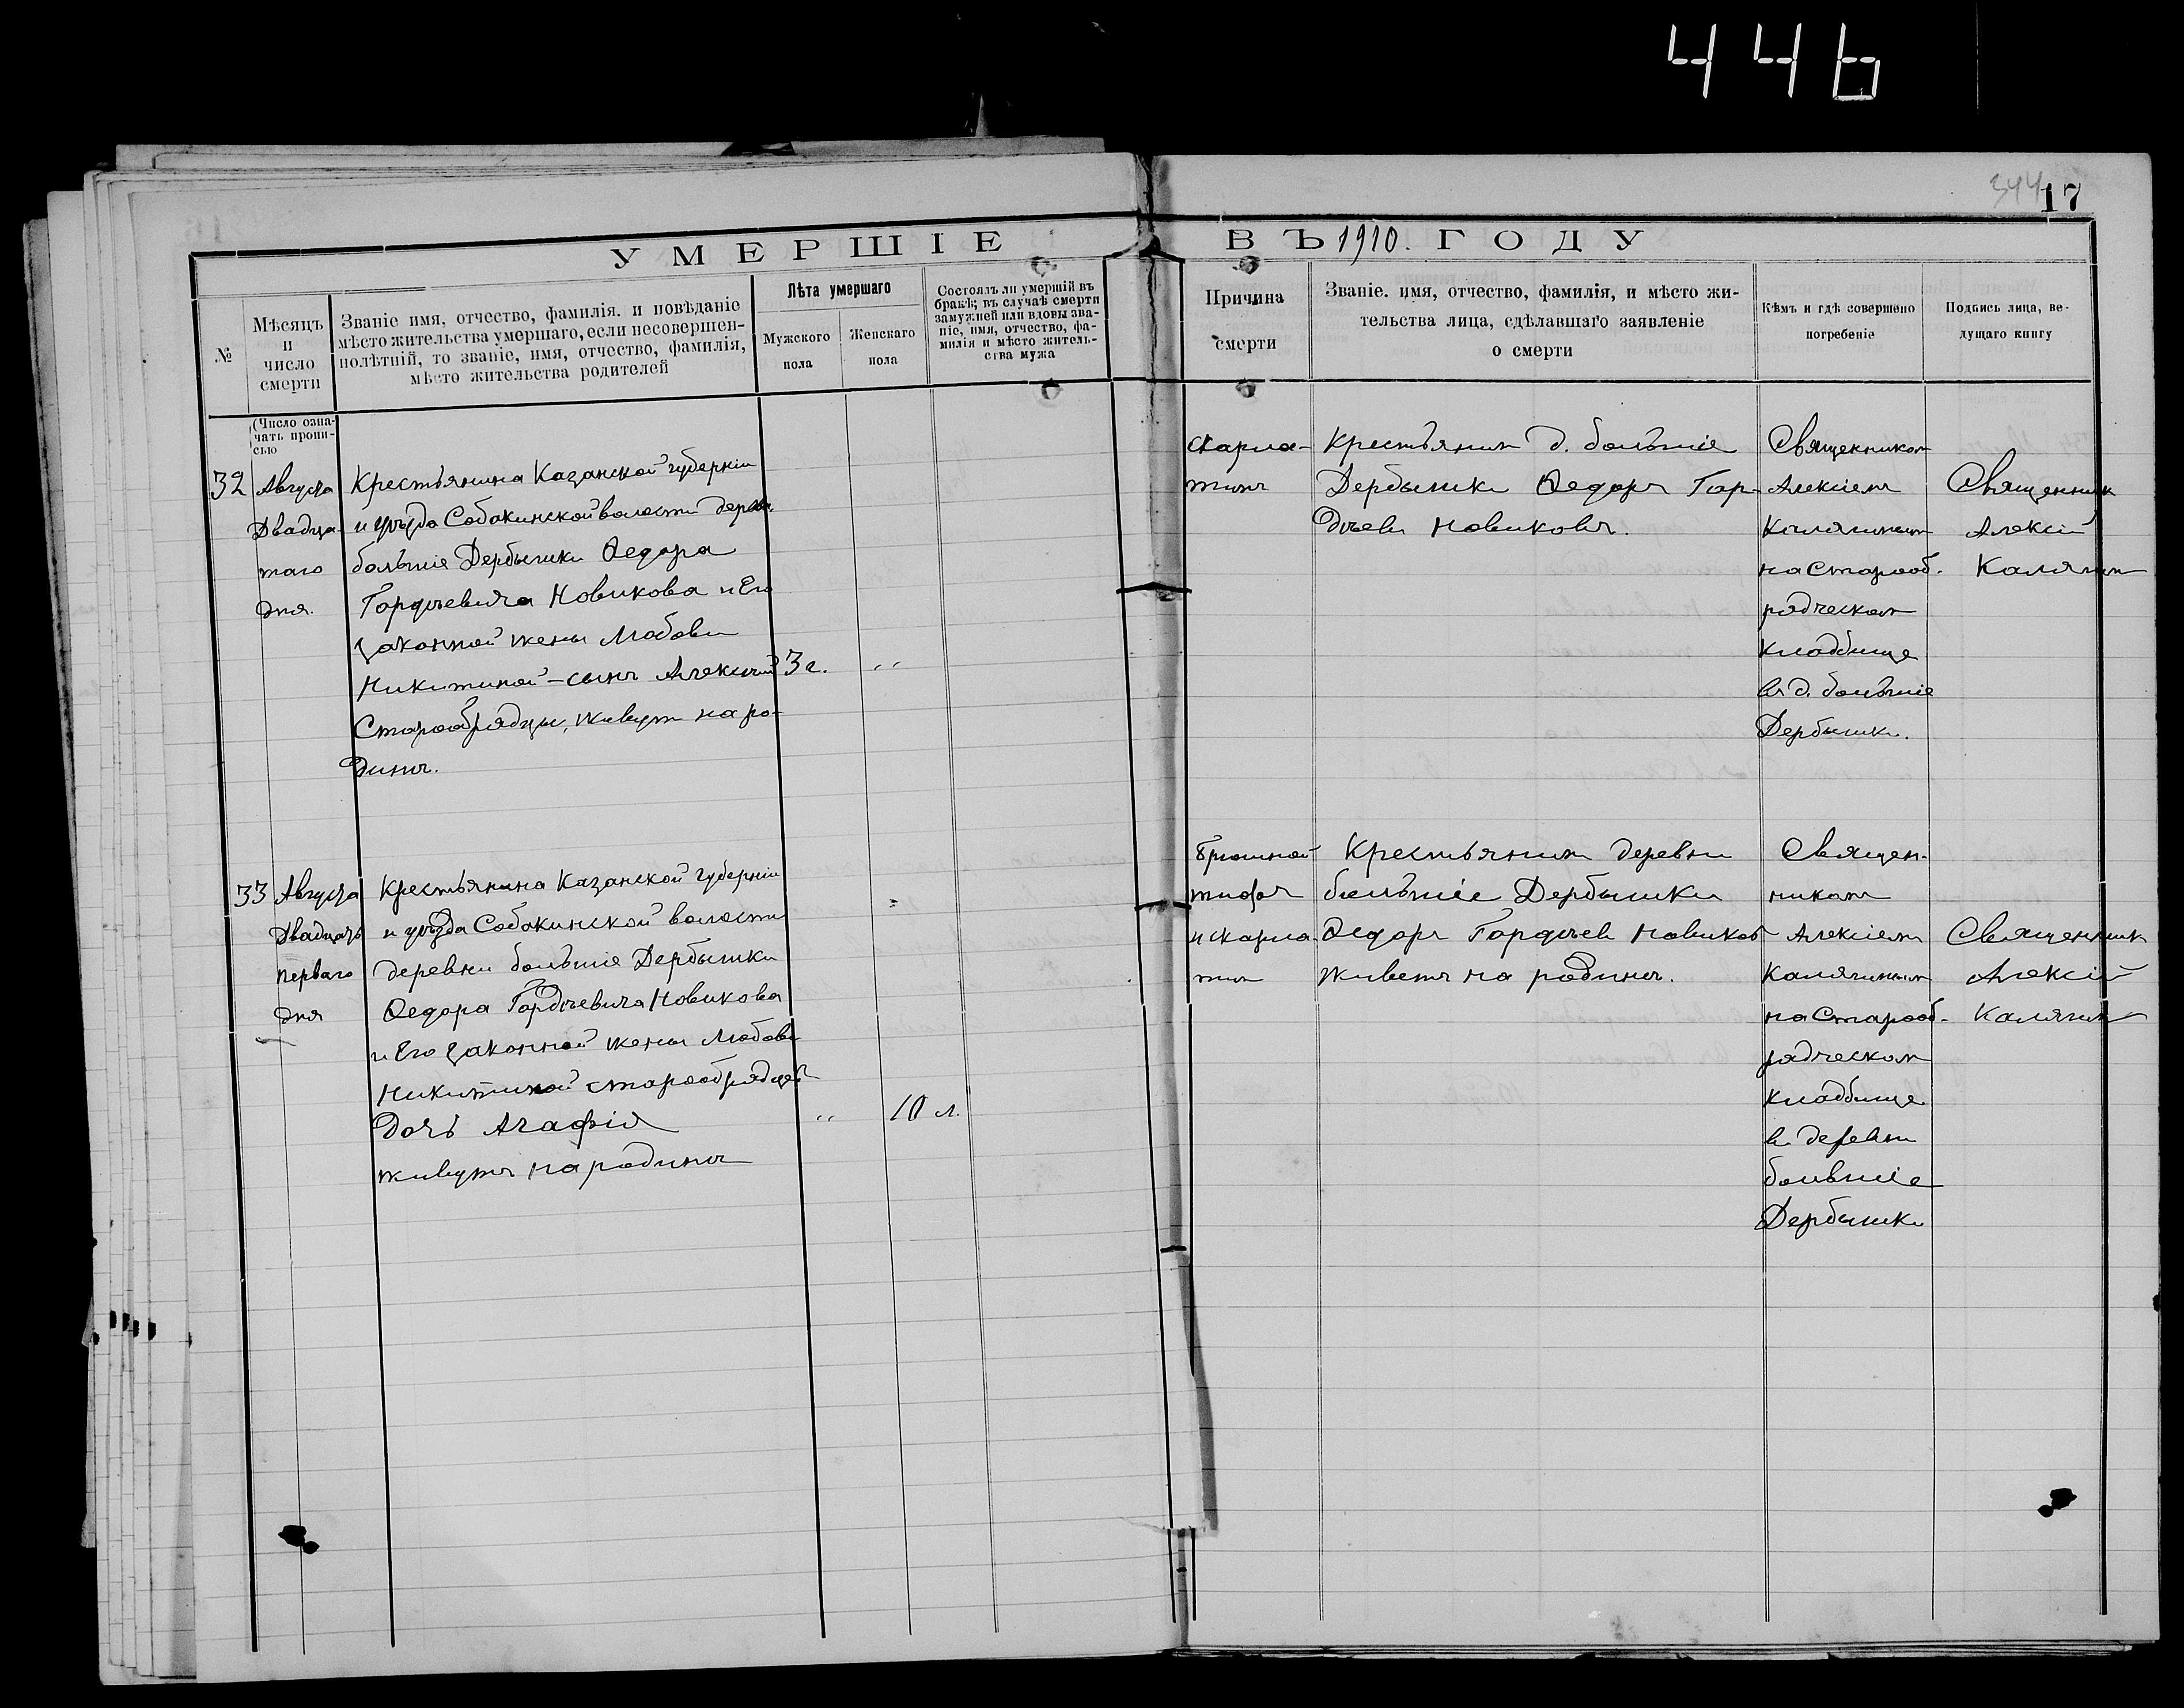 446
344
17
УМЕРШІЕ
ВЪ 1910. ГОДУ
№
Мѣсяцъ
и
число
смерти
Званіе имя, отчество, фамилія. и повѣданіе
мѣсто жительства умершаго, если несовершен-
нолѣтній, то званіе, имя, отчество, фамилія,
мѣсто жительства родителей
Лѣта умершаго
Мужского
пола
Женскаго
пола
Состоялъ ли умершій въ
бракѣ; въ случаѣ смерти
замужней или вдовы зва-
ніе, имя, отчество, фа-
милія и мѣсто житель-
ства мужа
Причина
смерти
Званіе. имя, отчество, фамилія, и мѣсто жи-
тельства лица, сдѣлавшаго заявленіе
о смерти
Кѣмъ и гдѣ совершено
погребеніе
Подпись лица, ве-
дущаго книгу
(Число озна-
чать пропи-
сью
32
Августа
Двадца-
таго
дня.
Крестьянина Казанской губерніи
и уѣзда Собакинской волости дерев.
большіе Дербышки Ѳедора
Гордѣевича Новикова и Его
законной жены Любови
Никитиной - сынъ Алексѣй
Старообрядцы, живут на ро-
динѣ.
3 г.
"
скарла-
тинъ
Крестьянин д. большіе
Дербышки Ѳедоръ Гор-
дѣевъ Новиковъ.
Священником
Алексіемъ
Калягиным
на Старооб-
рядческом
кладбище
въ д. большіе
Дербышки.
Священник
Алексій
Калягин
33
Августа
Двадцать
перваго
дня
Крестьянина Казанской губерніи
и уѣзда Собакинской волости
деревни большіе Дербышки
Ѳедора Гордѣевича Новикова
и Его законной жены Любови
Никитиной старообрядцев
Дочь Агафія
живутъ на родинѣ
"
10 л.
брюшной
тифъ
и скарла-
тин
Крестьянин деревни
большіе Дербышки
Ѳедоръ Гордѣев Новиков
живетъ на родинѣ.
Священ-
ником
Алексіем
Калягиным
на Старооб-
рядческом
кладбище
в деревни
большіе
Дербышки
Священник
Алексій
Калягин